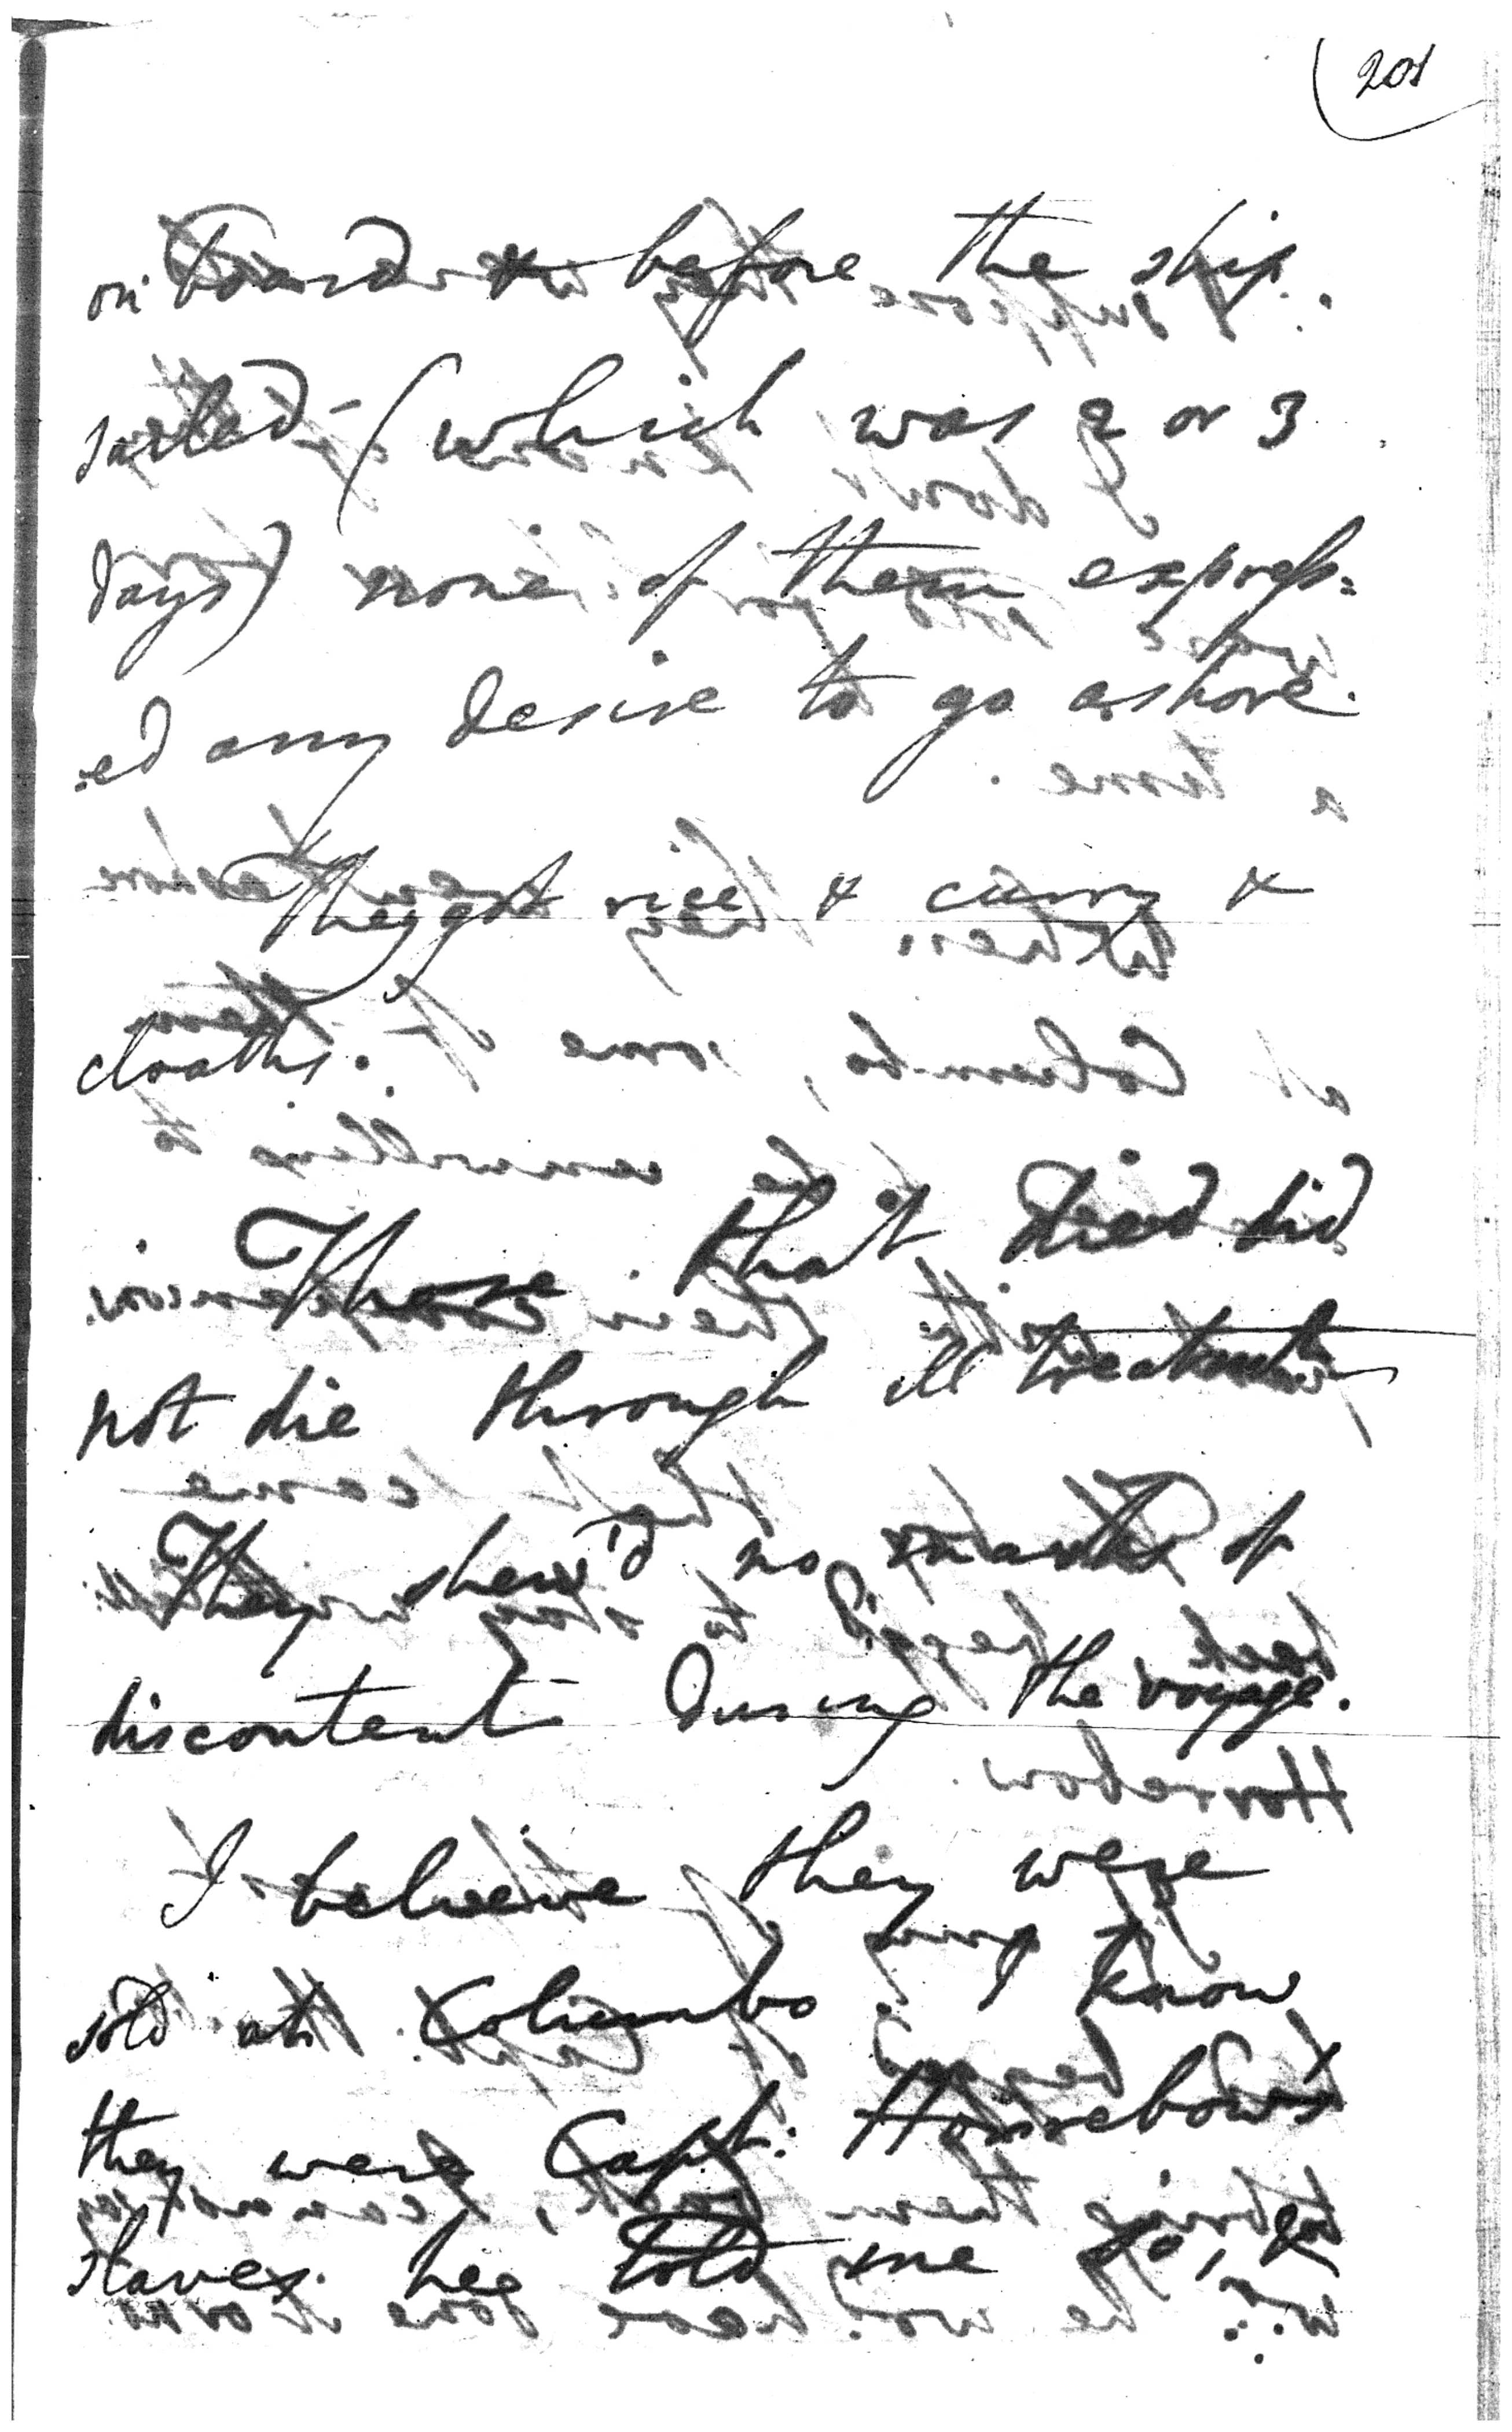 201
on board & before the ship
sailed (which was 2 or 3
days) none of them express=
:ed any desire to go ashore.
They got rice & curry &
cloaths.
Those that died did
not die through ill treatment
They shew'd no marks of
discontent During the voyage.
I believe they were
sold at Columbo. I know
they were Capt: Horrebow's
slaves. he told me so,